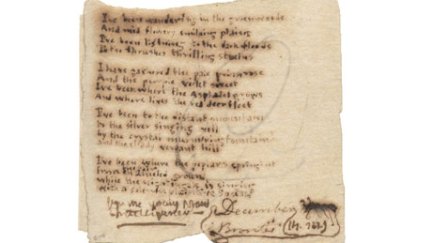 I've been wandering in the greenwoods
And mid flowery smiling plains
I've been listening to the dark floods
To the thrushes thrilling strains
I have gathered the pale primrose
And the purple violet sweet
I've been where the Asphodel grows
And where lives the red deer fleet
I've been to the distant mountain
To the silver singing rill
By the crystal murmering fountain
And the shady verdant hill
I've been where the poplar is springing
From the ground
While the is singing
With a solemn
December
Bronte